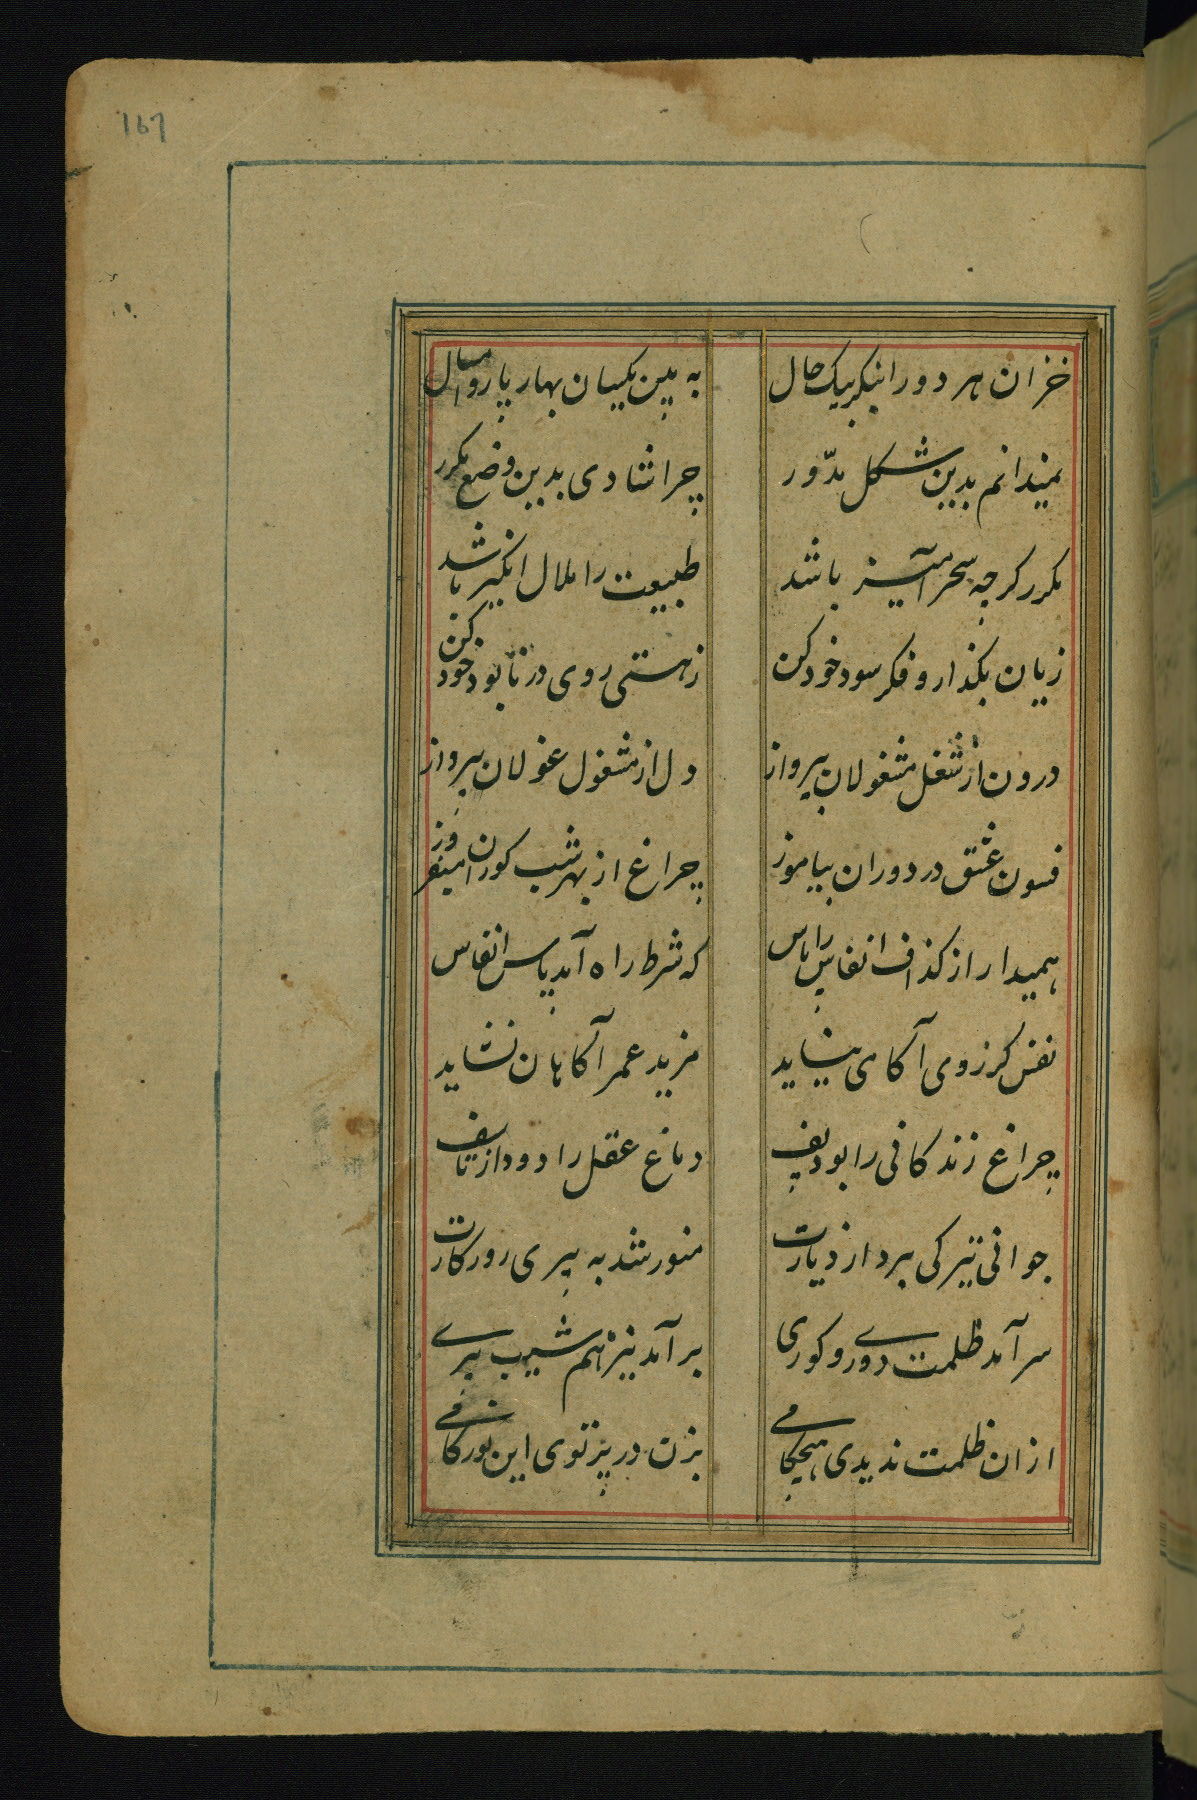 167
خزان هر دو را بنکر بیک حال
به بین یکسان بهار پار و امسال
نمیدانم بدین شکل مدّور
چرا شادی بدین وضع مکرر
مکرر کرچه سحر آمیز باشد
طبیعت را ملال انکیز باشد
زیان بکذار و فکر سود خود کن
ز هستی روی در نابود خود کن
درون از شغل مشغولان بپرداز
دل از مشغول غولان بپرداز
فسون عشق در دوران بیاموز
چراغ از بهر شب کوران میفروز
همیدار از کذاف انفاس را پاس
که شرط راه آمد پاس انفاس
نفس کز روی آکاهی نیاید
مزید عمر آکاهان نشاید
چراغ زندکانی را بود پف
دماغ عقل را دود از تف
جوانی تیرکی برد از دیارت
منور شد به پیری روزکارت
سر آمد ظلمت دوری و کوری
برآمد نیز هم شیب پیری
از ان ظلمت ندیدی هیچ کامی
بزن در پرتوی این نور کامی